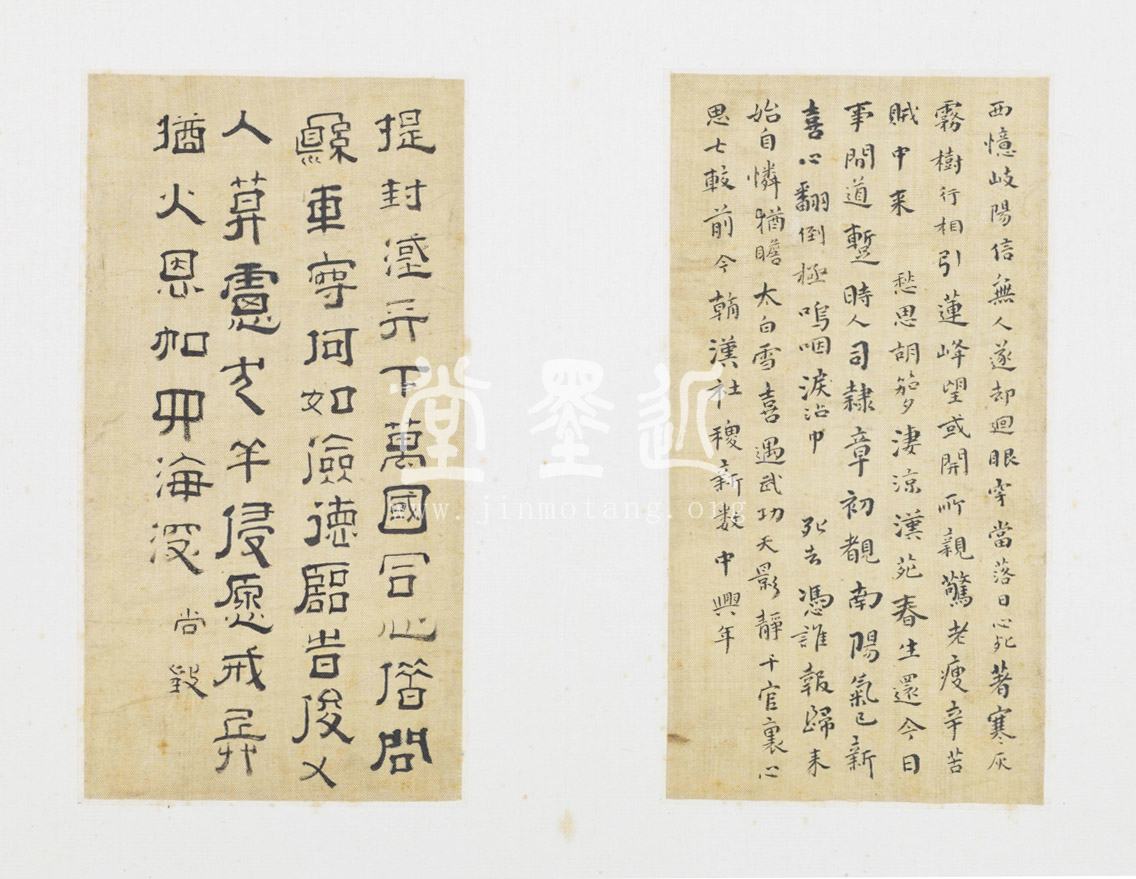 西憶岐陽信無人遂却迴眼穿當落日心死著寒灰
霧樹行相引蓮峰望或開所親驚老瘦辛苦
賊中来 愁思胡笳夕淒涼漢苑春生還今日
事間道蹔時人司隸章初覩南陽氣已新
喜心翻倒極嗚咽淚沾巾 死去憑誰報歸来
始自憐猶瞻太白雪喜遇武功天影靜千官裏心
思七較前今朝漢社稷新數中興年
提封漢天下萬國同心借問
縣車守何如儉德臨旹俊乂
入莫慮犬羊侵愿戒兵
猶火恩加四海深 尚 徵
近墨堂
www.jinmotang.org